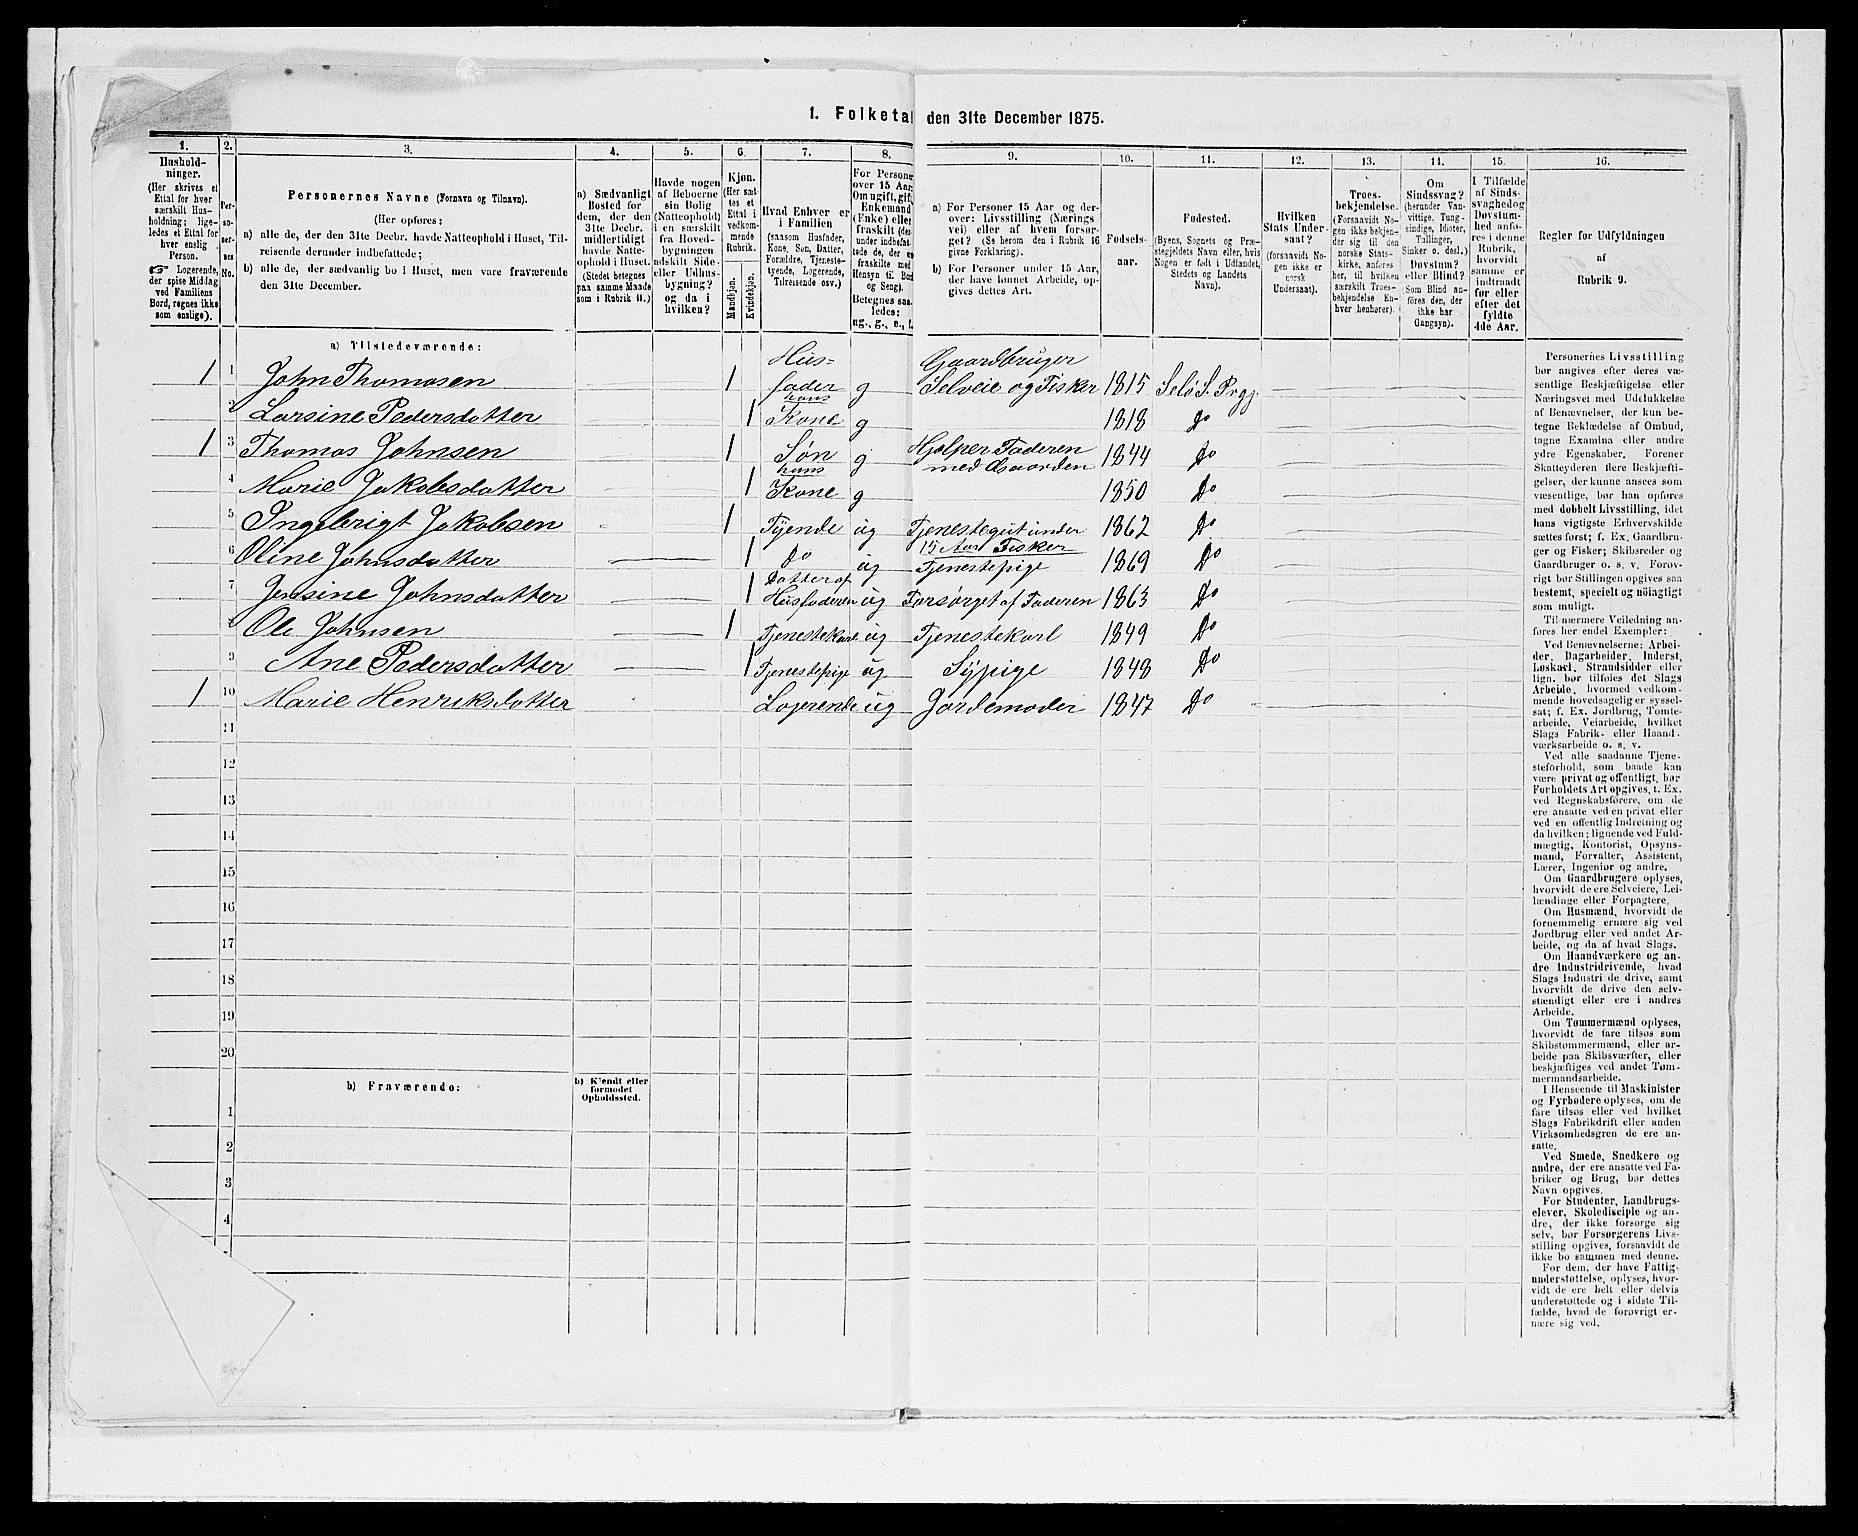 1. Folketal den 31te December 1875.
1.
Hushold-
ninger.
(Her skrives et
Ettal for hver
særskilt Hus-
holdning; lige-
ledes et Ettal for
hver enslig
Person.
☞ Logerende,
der spise Middag
ved Familiens
Bord, regnes ikke
som enslige).
2.
Per-
so-
ner-
nes
No.
3.
Personernes Navne (Fornavn og Tilnavn).
(Her opføres:
a) alle de, der den 31te Decbr. havde Natteophold i Huset, Til-
reisende derunder indbefattede;
b) alle de, der sædvanlig bo i Huset, men vare fraværende
den 31te December.
4.
a) Sædvanligt
Bosted for
dem, der den
31te Decbr.
midlertidigt
havde Natte-
ophold i Huset.
(Stedet betegnes
paa samme Maade
som i Rubrik 11.)
5.
Havde nogen
af Beboerne
sin Bolig
(Natteophold)
i en særskilt
fra Hoved-
bygningen
adskilt Side-
eller Udhus-
bygning?
og da i
hvilken?
6.
Kjøn.
(Her sæt-
tes et
Ettal i
vedkom-
mende
Rubrik.
Mandkjøn.
Kvindekjøn.
7.
Hvad Enhver er
i Familien
(saasom Husfader,
Kone, Søn, Datter,
Forældre, Tjeneste-
tyende, Logerende,
Tilreisende osv.)
8.
For Persone
over 15 Aar
Om ugift, gift
Enkemand
(Enke) eller
fraskilt (der-
under indbefat-
tede de, der ere
fraskilte med
Hensyn til Bord
og Seng).
Betegnes saa-
ledes:
ug., g., e., f.
9.
a) For Personer 15 Aar og der-
over: Livsstilling (Nærings
vei) eller af hvem forsør-
get? (Se herom den i Rubrik 16
givne Forklaring).
b) For Personer under 15 Aar,
der have lønnet Arbeide, op-
gives dettes Art.
10.
Fødsels-
aar.
11.
Fødested.
(Byens, Sognets og Præ-
stegjeldets Navn eller, hvis
Nogen er født i Udlandet,
Stedets og Landets
Navn).
12.
Hvilken
Stats Under-
saat?
(forsaavidt No-
gen ikke er
norsk
Undersaat).
13.
Troes-
bekjendelse.
(Forsaavidt No-
gen ikke bekjen-
der sig til den
norske Stats-
kirke, anføres
her, til hvilken
særskilt Troes-
bekjendelse En-
hver henhører).
14.
Om
Sindssvag?
(herunder Van-
vittige, Tung-
sindige, Idioter,
Tullinger,
Sinker o. desl.)
Døvstum?
eller Blind?
(Som Blind an-
føres den, der
ikke har
Gangsyn).
15.
I Tilfælde
af Sinds-
svaghed og
Døvstum-
hed anfø-
res i denne
Rubrik,
hvorvidt
samme er
indtraadt
før eller
efter det
fyldte
4de Aar.
16.
Regler for Udfyldningen
af
Rubrik 9.
a) Tilstedeværende:
1 1 John Thomasen 1 Hus-
fader g Gaardbruger
Selveie og Fisker 1815 Selø S. Prgj.
2 Larsine Pedersdatter 1 hans
Kone g 1818 Do
1 3 Thomas Johnsen 1 Søn g Hjelper Faderen
med Gaarden 1844 Do
4 Marie Jakobsdatter 1 hans
Kone g 1850 Do
5 Ingebrigt Jakobsen 1 Tyende ug Tjenestegut under
15 Aar Fisker 1862 Do
6 Oline Johnsdatter 1 Do ug Tjenestepige 1869 Do
7 Jensine Johnsdatter 1 Datter af
Husfaderen ug Forsørget af Faderen 1863 Do
8 Ole Johnsen 1 Tjenestekarl ug Tjenestekarl 1849 Do
9 Ane Pedersdatter 1 Tjenestepige ug Sypige 1848 Do
1 10 Marie Henriksdatter Lojerende ug Jordemoder 1847 Do
11
12
13
14
15
16
17
18
19
20
b) Fraværende:
b) Kjendt eller
formodet
Opholdssted.
1
2
3
4
Personernes Livsstilling
bør angives efter deres væ-
sentlige Beskjæftigelse eller
Næringsvei med Udelukkelse
af Benævnelser, der kun be-
tegne Beklædelse af Ombud,
tagne Examina eller andre
ydre Egenskaber. Forener
Skatteyderen flere Beskjæfti-
gelser, der kunne ansees som
væsentlige, bør han opføres
med dobbelt Livsstilling, idet
hans vigtigste Erhvervskilde
sættes først; f. Ex. Gaardbru-
ger og Fisker; Skibsreder og
Gaardbruger o. s. v. Forøv-
rigt bør Stillingen opgives saa
bestemt, specielt og nøiagtigt
som muligt.
Til nærmere Veiledning an-
føres her endel Exempler:
Ved Benævnelserne: Arbei-
der, Dagarbeider, Inderst,
Løskarl, Strandsidder eller
lign. bør tilføies det Slags
Arbeide, hvormed vedkom-
mende hovedsagelig er syssel-
sat; f. Ex. Jordbrug, Tømte-
arbeide, Veiarbeide, hvilket
Slags Fabrik- eller Haand-
værksarbeide o. s. v.
Ved alle saadanne Tjene-
steforhold, som baade kan
være privat og offentligt, bør
Forholdets Art opgives, t. Ex.
ved Regnskabsførere, om de
ere ansatte ved en privat eller
ved en offentlig Indretning og
da hvilken; lignende ved Fuld-
mægtig, Kontorist, Opsyns-
mand, Forvalter, Assistent,
Lærer, Ingeniør og andre.
Om Gaardbrugere oplyses,
hvorvidt de ere Selveiere, Lei-
lændinge eller Forpagtere.
Om Husmænd, hvorvidt de
fornemmelig ernære sig ved
Jordbrug eller ved andet Ar-
beide, og da af hvad Slags.
Om Haandværkere og an-
dre Industridrivende, hvad
Slags Industri de drive, samt
hvorvidt de drive den selv-
stændigt eller ere i andres
Arbeide.
Om Tømmermænd oplyses,
hvorvidt de fare tilsøs som
Skibstømmermænd, eller ar-
beide paa Skibsværfter, eller
beskjæftiges ved andet Tøm-
mermandsarbeide.
I Henseende til Maskinister
og Fyrbødere oplyses, om de
fare tilsøs eller ved hvilket
Slags Fabrikdrift eller anden
Virksomhedsgren de ere an-
satte.
Ved Smede, Snedkere og
andre, der ere ansatte ved Fa-
briker og Brug, bør dettes
Navn opgives.
For Studenter, Landbrugs-
elever, Skoledisciple og an-
dre, der ikke forsørge sig
selv, bør Forsørgerens Livs-
stilling opgives, forsaavidt de
ikke bo sammen med denne.
For dem, der have Fattig-
understøttelse, oplyses, hvor-
vidt de ere helt eller delvis
understøttede og i sidste Til-
fælde, hvad de forøvrigt er-
nære sig ved.